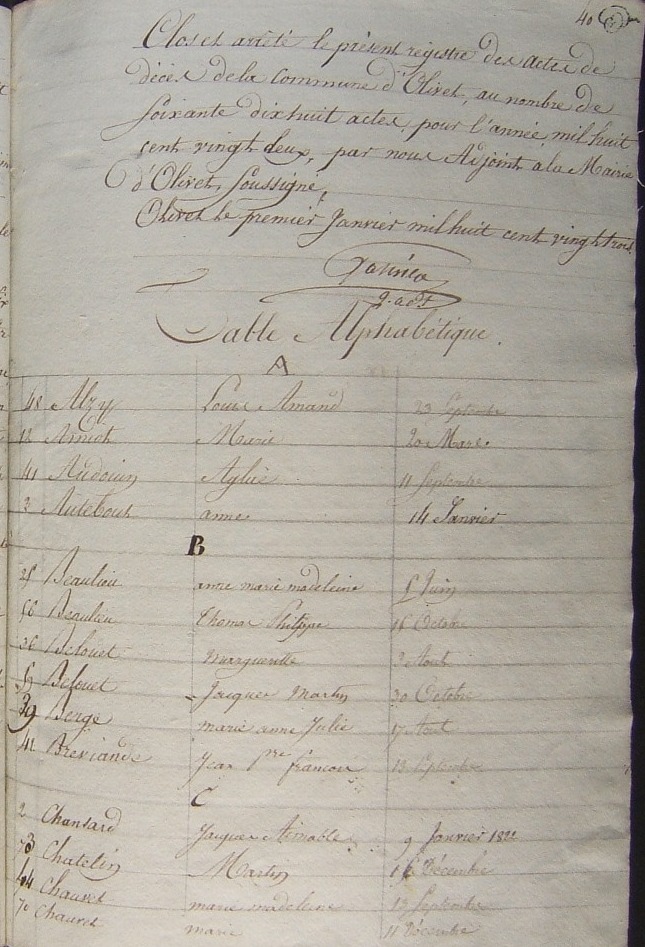 40
Clos et arrêté le présent registre des actes de
décès de la Commune d'Olivet, au nombre de
soixante dixhuit actes, pour l'année mil huit
cent vingt deux, par nous Adjoint a la Mairie
d'Olivet, soussigné,
Olivet le premier Janvier mil huit cent vingt trois
Table Alphabétique.
A
48 Alzy Louis Amand 23 Septembre
12 Arnoit Marie 20 Mars
41 Audouin Aglaé 11 Septembre
3 Autebout anne 14 Janvier
B
Beaulieu anne marie madeleine 5 Juin
56 Beaulieu Thomas Philippe 15 Octobre
36 Belouet marguerite 2 Aout
Belouet Jacques Martin 30 Octobre
39 Bergé marie anne Julie 17 Aout
Breviande Jean pre francois 13 Septembre
C
2 Chansard Jacques Aimable 9 Janvier 1822
73 Chatelin Martin Décembre
44 Chauvet marie madeleine 13 Septembre
70 Chauvet marie 11 Décembre